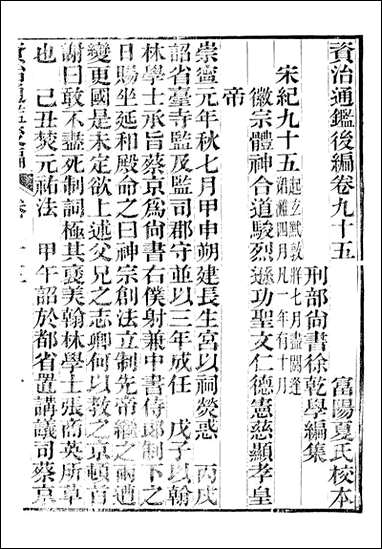 資治通鑑後編卷九十五
富陽夏氏校本
刑部尚書徐乾學編集
宋紀九十五起玄黓敦牂七月盡閼逢涒灘四月凡一年有十月
徽宗體神合道駿烈遜功聖文仁德憲慈顯孝皇
帝
崇寧元年秋七月甲申朔建長生宮以祠熒惑　丙戌
詔省臺寺監及監司郡守並以三年成任　戊子以翰
林學士承旨蔡京為尚書右僕射兼中書侍郎制下之
日賜坐延和殿命之曰神宗創法立制先帝繼之兩遭
變更國是未定欲上述父兄之志卿何以教之京頓首
謝曰敢不盡死制詞極其褒美翰林學士張商英所草
也　己丑焚元祐法　甲午詔於都省置講議司蔡京